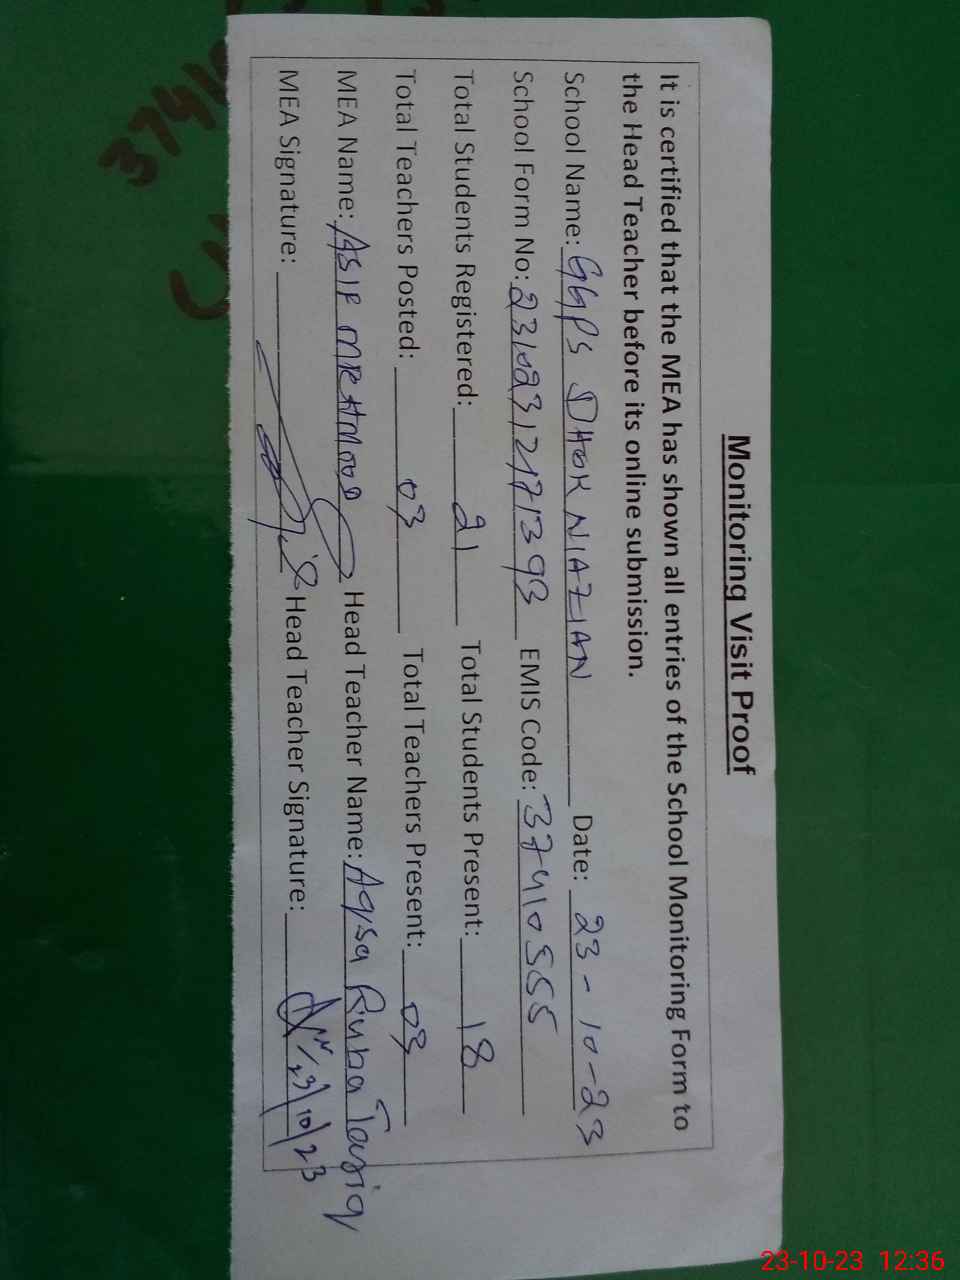 Monitoring Visit Proof
It is certified that the MEA has shown all entries of the School Monitoring Form to
the Head Teacher before its online submission.
School Name: GGPS DHOK NIAZIAN Date: 23-10-23
School Form No: 23102312171393 EMIS Code: 37410555
Total Students Registered: 21 Total Students Present: 18
Total Teachers Posted: 03 Total Teachers Present: 03
MEA Name: ASIF MEHMOOD Head Teacher Name: Aqsa Tariq
MEA Signature: Head Teacher Signature: 23/10/23
23-10-23 12:36